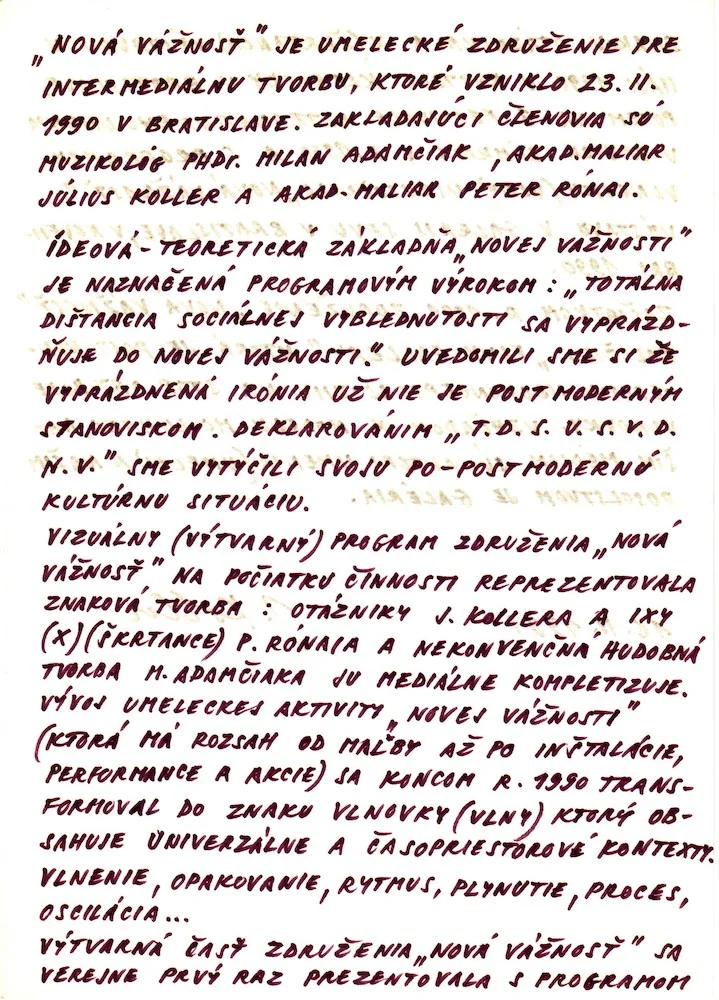 „NOVÁ VÁŽNOSŤ" JE UMELECKÉ ZDRUŽENIE PRE
INTERMEDIÁLNU TVORBU, KTORÉ VZNIKLO 23. II.
1990 V BRATISLAVE. ZAKLADAJÚCI ČLENOVIA SÚ
MUZIKOLÓG PHDr. MILAN ADAMČIAK, AKAD.MALIAR
JÚLIUS KOLLER A AKAD. MALIAR PETER RÓNAI.
ÍDEOVÁ-TEORETICKÁ ZÁKLADŇA „NOVEJ VÁŽNOSTI"
JE NAZNAČENÁ PROGRAMOVÝM VÝROKOM: „TOTÁLNA
DIŠTANCIA SOCIÁLNEJ VYBLEDNUTOSTI SA VYPRÁZD-
ŇUJE DO NOVEJ VÁŽNOSTI." UVEDOMILI SME SI ŽE
VYPRÁZDNENÁ IRÓNIA UŽ NIE JE POSTMODERNÝM
STANOVISKOM. DEKLAROVÁNIM „T.D.S.V.S.V.D.
N.V." SME VYTÝČILI SVOJU PO-POSTMODERNÚ
KULTÚRNU SITUÁCIU.
VIZUÁLNY (VÝTVARNÝ) PROGRAM ZDRUŽENIA „NOVÁ
VÁŽNOSŤ" NA POČIATKU ČINNOSTI REPREZENTOVALA
ZNAKOVÁ TVORBA: OTÁZNIKY J. KOLLERA A IXY
(X) (ŠKRTANCE) P. RÓNAIA A NEKONVENČNÁ HUDOBNÁ
TVORBA M. ADAMČIAKA JU MEDIÁLNE KOMPLETIZUJE.
VÝVOJ UMELECKEJ AKTIVITY „NOVEJ VÁŽNOSTI"
(KTORÁ MÁ ROZSAH OD MAĽBY AŽ PO INŠTALÁCIE,
PERFORMANCE A AKCIE) SA KONCOM R. 1990 TRANS-
FORMOVAL DO ZNAKU VLNOVKY (VLNY) KTORÝ OB-
SAHUJE UNIVERZÁLNE A ČASOPRIESTOROVÉ KONTEXTY.
VLNENIE, OPAKOVANIE, RYTMUS, PLYNUTIE, PROCES,
OSCILÁCIA...
VÝTVARNÁ ČASŤ ZDRUŽENIA „NOVÁ VÁŽNOSŤ" SA
VEREJNE PRVÝ RAZ PREZENTOVALA S PROGRAMOM